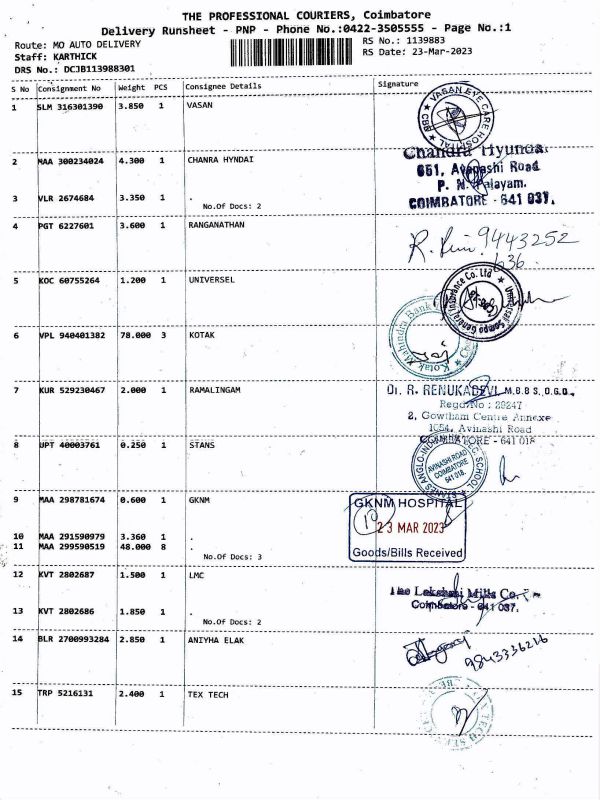 THE PROFESSIONAL COURIERS, Coimbatore
Delivery Runsheet - PNP - Phone No.:0422-3505555 - Page No.:1
Route: MO AUTO DELIVERY
RS No.: 1139883
Staff: KARTHICK
RS Date: 23-Mar-2023
DRS No.: DCJB113988301
S No Consignment No Weight PCS Consignee Details Signature
1 SLM 316301390 3.850 1 VASAN
VASAN EYE CARE HOSPITAL
CBE
2 MAA 300234024 4.300 1 CHANRA HYNDAI
Chandra Hyundai
651, Avinashi Road
P. N. Palayam.
COIMBATORE - 641 037.
3 VLR 2674684 3.350 1 .
No.Of Docs: 2
4 PGT 6227601 3.600 1 RANGANATHAN
9443252
636
5 KOC 60755264 1.200 1 UNIVERSEL
Universal Sompo General Insurance Co. Ltd
6 VPL 940401382 78.000 3 KOTAK
Kotak Mahindra Bank
7 KUR 529230467 2.000 1 RAMALINGAM
Dr. R. RENUKADEVI, M.B.B.S.,D.G.O.,
Regd No : 29247
2, Gowtham Centre Annexe
1054, Avinashi Road
COIMBATORE - 641 018
8 UPT 40003761 0.250 1 STANS
AVINASHI ROAD
COIMBATORE
641 018.
9 MAA 298781674 0.600 1 GKNM
GKNM HOSPITAL
23 MAR 2023
Goods/Bills Received
10 MAA 291590979 3.360 1 .
11 MAA 299590519 48.000 8 .
No.Of Docs: 3
12 KVT 2802687 1.500 1 LMC
The Lakshmi Mills Co.
Coimbatore - 641 037.
13 KVT 2802686 1.850 1 .
No.Of Docs: 2
14 BLR 2700993284 2.850 1 ANIYHA ELAK
9843336216
15 TRP 5216131 2.400 1 TEX TECH